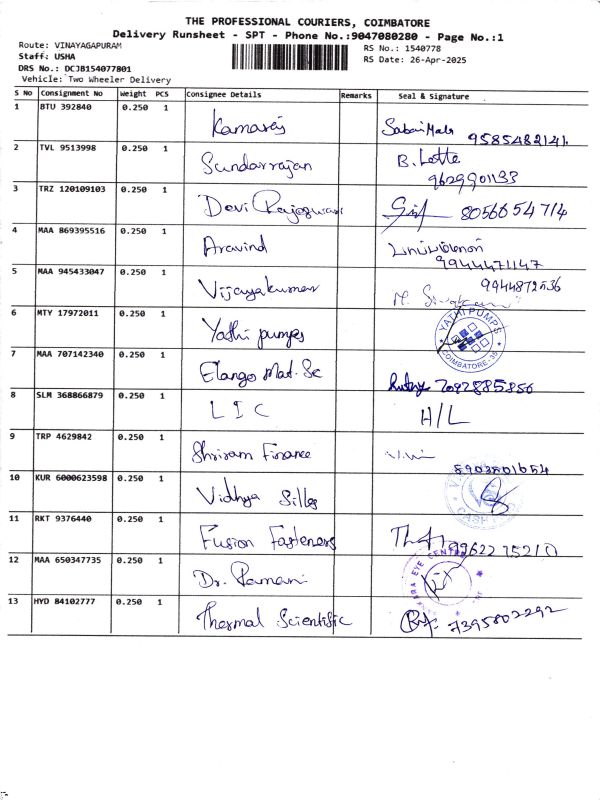 THE PROFESSIONAL COURIERS, COIMBATORE
Delivery Runsheet - SPT - Phone No.:9047080280 - Page No.:1
Route: VINAYAGAPURAM
Staff: USHA
DRS No.: DCJB154077801
Vehicle: Two Wheeler Delivery
RS No.: 1540778
RS Date: 26-Apr-2025
S No Consignment No Weight PCS Consignee Details Remarks Seal & Signature
1 BTU 392840 0.250 1 Kamaraj 9585482141
2 TVL 9513998 0.250 1 Sundarrajan B. Lotte
9629901133
3 TRZ 120109103 0.250 1 Devi Rajeswari 8056654714
4 MAA 869395516 0.250 1 Aravind
9944471147
5 MAA 945433047 0.250 1 Vijayakumar 9944872536
6 MTY 17972011 0.250 1 Yathi pumps YATHI PUMPS COIMBATORE-35
7 MAA 707142340 0.250 1 Elango Mat. Sc 7092885856
8 SLM 368866879 0.250 1 LIC H/L
9 TRP 4629842 0.250 1 Shriram Finance
8903801654
10 KUR 6000623598 0.250 1 Vidhya Silks CASH
11 RKT 9376440 0.250 1 Fusion Fasteners 9962275210
12 MAA 650347735 0.250 1 Dr. Ramani EYE CENTRE
13 HYD 84102777 0.250 1 Thermal Scientific 7395802292